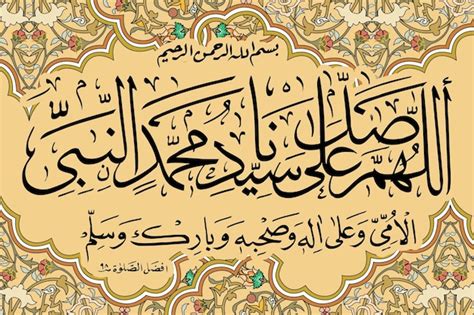 بسم الله الرحمن الرحيم
اللهم صل على سيدنا محمد النبي
الامي وعلى اله وصحبه وبارك وسلم
افضل الصلوة